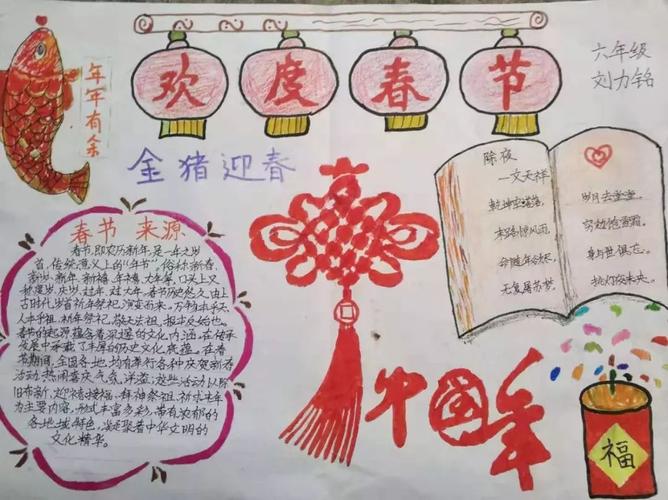 欢度春节
六年级
刘力铭
年年有余
金猪迎春
春节 来源
春节,即农历新年,是一年之岁
首、传统意义上的“年节”。俗称新春、
新岁、新年、新禧、年禧、大年等,口头上又
称度岁、庆岁、过年、过大年。春节历史悠久,由上
古时代岁首祈年祭祀演变而来。万物本乎天、
人本乎祖,祈年祭祀、敬天法祖,报本反始也。
春节的起源蕴含着深邃的文化内涵,在传承
发展中承载了丰厚的历史文化底蕴。在春
节期间,全国各地均有举行各种庆贺新春
活动,热闹喜庆气氛洋溢;这些活动以除
旧布新、迎禧接福、拜神祭祖、祈求丰年
为主要内容,形式丰富多彩,带有浓郁的
各地域特色,凝聚着中华文明的
文化精华。
除夜
—文天祥
乾坤空落落,
末路惊风雨,
命随年欲尽,
无复屠苏梦,
岁月去堂堂,
穷边饱雪霜。
身与世俱忘。
挑灯夜未央。
中国年
福